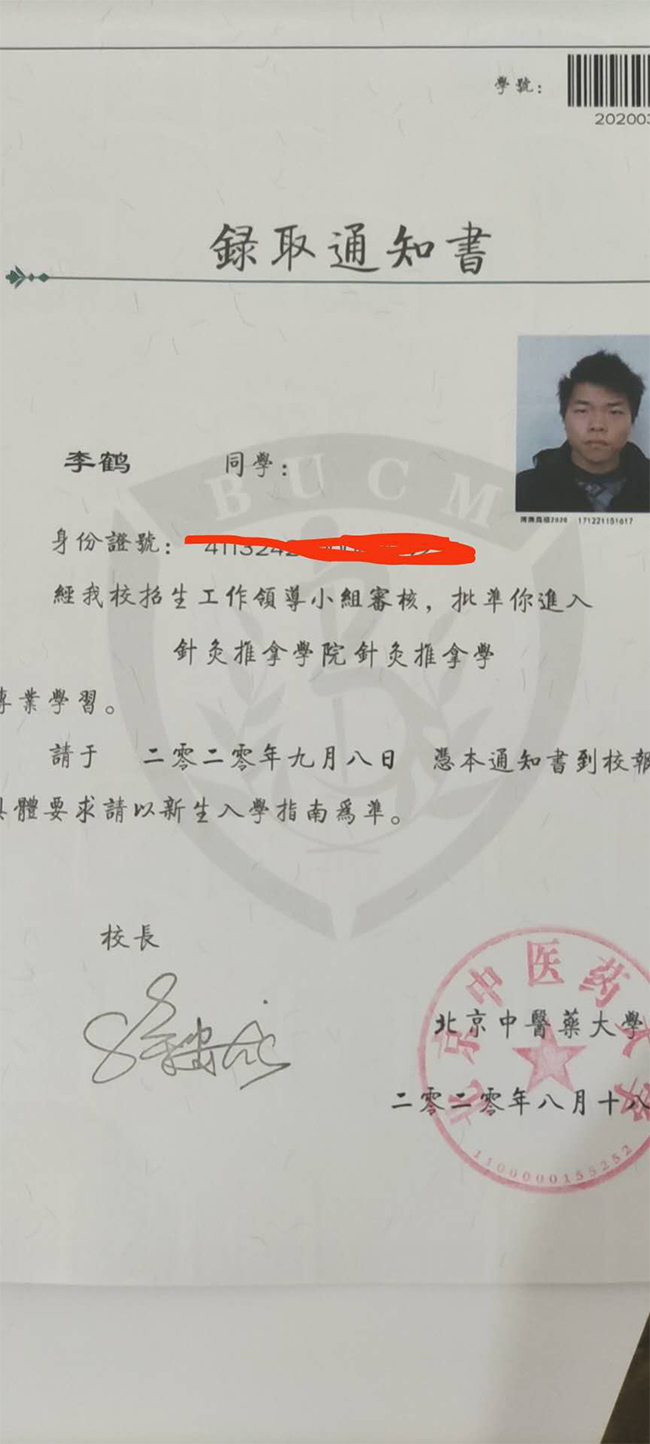 學號：
202003
録取通知書
李鹤 同學：
BUCM
身份證號：
經我校招生工作領導小組審核，批準你進入
針灸推拿學院針灸推拿學
專業學習。
請于 二零二零年九月八日 憑本通知書到校報
具體要求請以新生入學指南爲準。
校長
北京中醫藥大學
二零二零年八月十八
北京中医药大学
1100000155252
171221151617